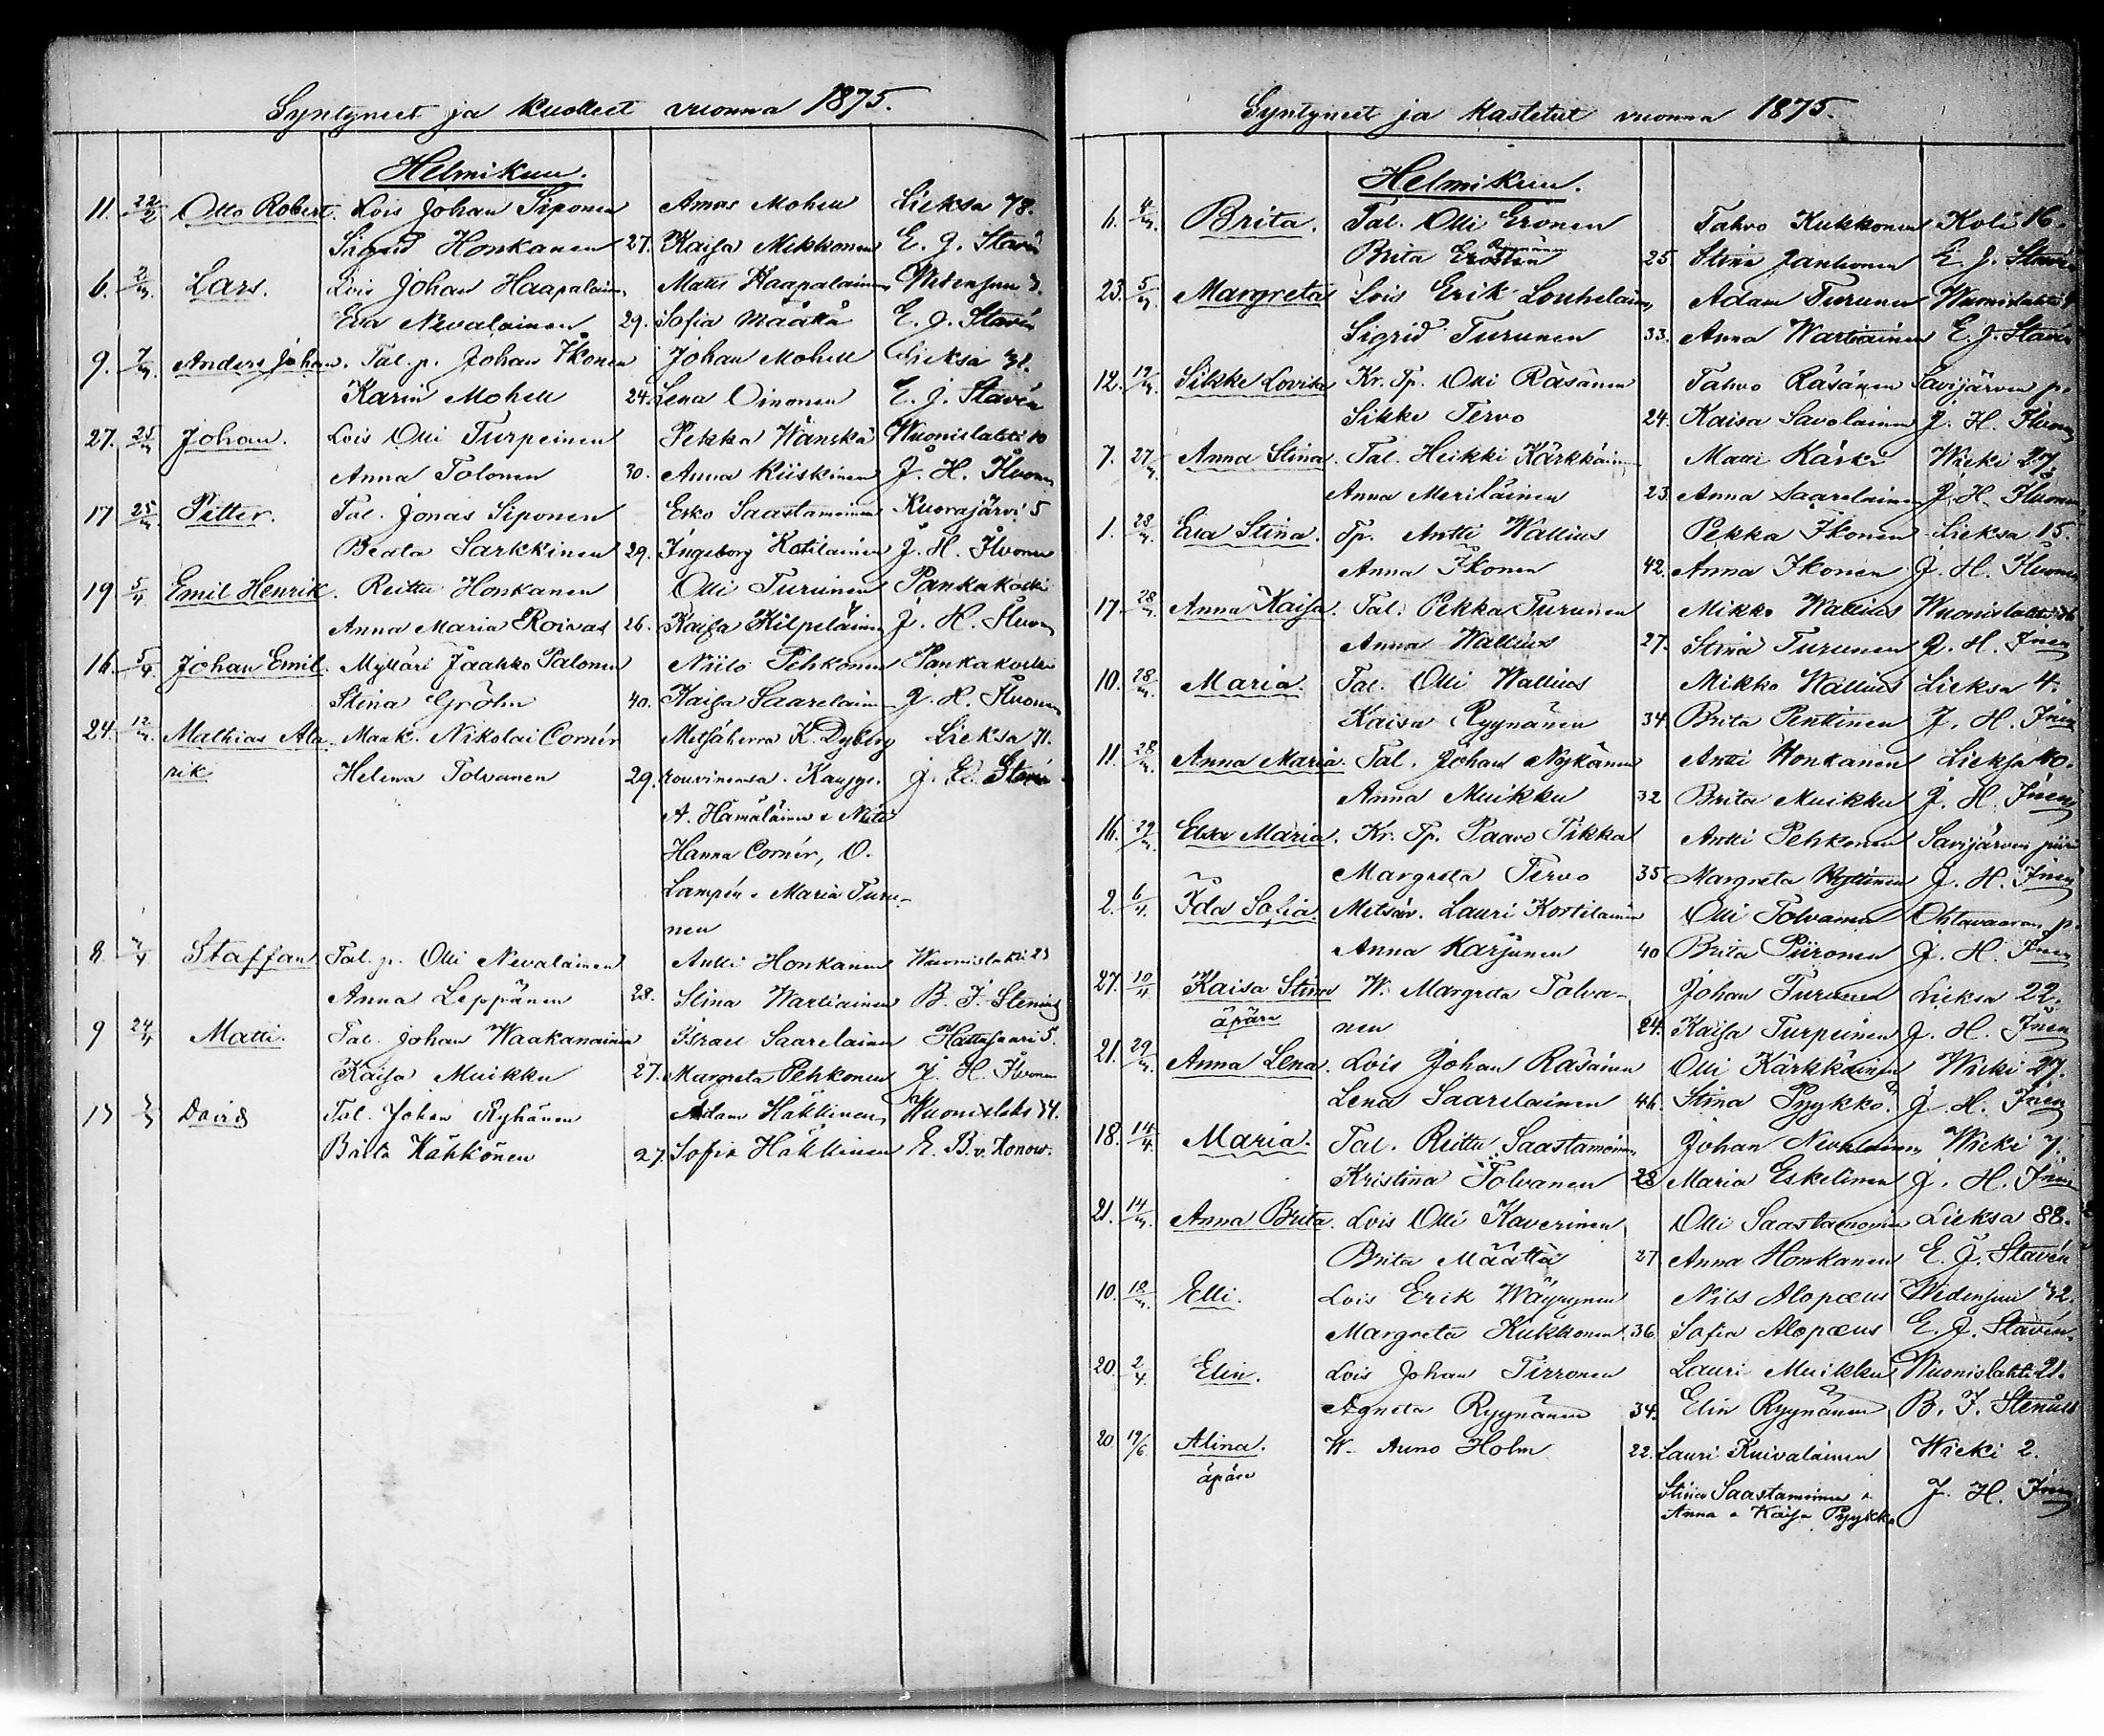 Syntyneet ja kuolleet vuonna 1875.
Helmikuu.
11. 22/2 Otto Robert. Lois Johan Siponen Amas Mohell Lieksa 78.
Sigrid Honkanen 27. Kaisa Mikkonen E. J. Stavén
6. 2/m. Lars. Lois Johan Haapalain. Matts Haapalainen Widensuu
Eva Nevalainen 29. Sofia Määttä E. J. Stavén
9. 7/m. Anders Johan. Tal. p. Johan Ikonen Johan Mohell Lieksa 31.
Karin Mohell 24. Lena Oinonen E. J. Stavén
27. 25/m Johan. Lois Olli Turpeinen Pekka Wänskä Wuonislahti 10
Anna Tolonen 30. Anna Kiiskinen J. H. Ikonen
17 25/m. Petter. Tal. Jonas Siponen Esko Saastamoinen Kuorajärvi 5
Beata Sarkkinen 29. Ingeborg Kotilainen J. H. Ikonen
19 5/4 Emil Henrik. Reittu Honkanen Olli Turunen Pankakoski
Anna Maria Roivas 26. Kaisa Kilpeläinen J. H. Ikonen
16. 5/4. Johan Emil. Mylläri Jaakko Palonen Niilo Pehkonen Pankakoski
Stina Gröhn 40. Kaisa Saarelain J. H. Ikonen
24. 12/m. Mathias Ala- Maak. Nikolai Cornér Metsäherra K. Dyberg Lieksa 71.
rik Helena Tolvanen 29. rouvinensa. Kauppi. J. E. Stavén
A. Hämäläinen & Neiti
Hanna Cornér, O.
Lampén & Maria Turu-
nen
8. 7/4 Staffan Tal. p. Olli Nevalainen Antti Honkanen Wuonislahti 23
Anna Leppänen 28. Stina Wartiainen B. J. Stenius
9 24/4 Matti. Tal. Johan Waakanainen Israel Saarelainen Hattusaari 5.
Kaisa Muikku 27. Margreta Pehkonen J. H. Ikonen
David Tal. Johan Ryhänen Adam Häkkinen Wuonislahti 34.
Brita Kähkönen 27. Sofia Häkkinen E. B. v. Konow.
Syntyneet ja kastetut vuonna 1875.
Helmikuu.
6. 4/m. Brita. Tal. Olli Eronen Tahvo Kukkonen Koli 16.
Brita 25. Stina Janhonen E. J. Stavén
23. 5/m. Margreta Lois Erik Louhelain, Adam Turunen Wuonislahti
Sigrid Turunen 33. Anna Wartiainen E. J. Stavén
12. 12/m. Sikke Lovisa Kr. Tp. Olli Räsänen Tahvo Räsänen Savijärven p.
Sikke Tervo 24. Kaisa Savolainen J. H. Ikonen
7. 27/m. Anna Stina. Tal. Heikki Kärkkäin- Matti Kärki Wieki 27.
Anna Meriläinen 23. Anna Saarelainen J. H. Ikonen
1. 28/m. Eva Stina. Tp. Antti Wallius Pekka Ikonen Lieksa 15.
Anna Ikonen 42. Anna Ikonen J. H. Ikonen
17. 28/m. Anna Kaisa. Tal. Pekka Turunen Mikko Wallius Wuonislahti 36
Anna Wallius 27. Stina Turunen J. H. Inen
10. 28/m. Maria. Tal. Olli Wallius Mikko Wallius Lieksa 4.
Kaisa Ryynänen 34. Brita Penttinen J. H. Inen
11. 28/m. Anna Maria. Tal. Johan Nykänen Antti Honkanen Lieksa 40.
Anna Muikku 32 Brita Muikku J. H. Inen
16. 29/m. Elsa Maria. Kr. Tp. Paavo Tikka Antti Pehkonen Savijärven piiri
Margreta Tervo 35 Margreta Kyttinen J. H. Inen
2. 6/4. Ida Sofia. Metsäv. Lauri Kortelainen Olli Tolvanen Ohtavaaran p.
Anna Karjunen 40 Brita Piironen J. H. Inen
27. 10/4 Kaisa Stina W. Margreta Tolva- Johan Turunen Lieksa 22.
äpärä nen 24. Kaisa Turpeinen J. H. Inen
21. 29/m. Anna Lena. Lois Johan Räsänen Olli Kärkkäinen Wieki 27.
Lena Saarelainen 46. Stina Pyykkö. J. H. Inen
18. 14/4. Maria. Tal. Reittu Saastamoinen, Johan Nevalainen Wieki 7.
Kristina Tolvanen 28 Maria Eskelinen J. H. Inen
21. 14/m. Anna Brita. Lois Olli Kaverinen Olli Saastamoinen Lieksa 88.
Brita Määttä 27 Anna Honkanen E. J. Stavén
10. 18/m. Elli. Lois Erik Wäyrynen Nils Alopæus Widensuu 32.
Margreta Kukkonen 36. Sofia Alopæus E. J. Stavén.
20. 2/4. Elin. Lois Johan Tirronen Lauri Muikku Wuonislahti 21.
Agneta Ryynänen 34. Elin Ryynänen B. J. Stenius
20. 19/6. Alina. W. Auno Holm 22. Lauri Kuivalainen Wieki 2.
äpärä Stina Saastamoinen & J. H. Inen
Anna & Kaisa Pyykkö